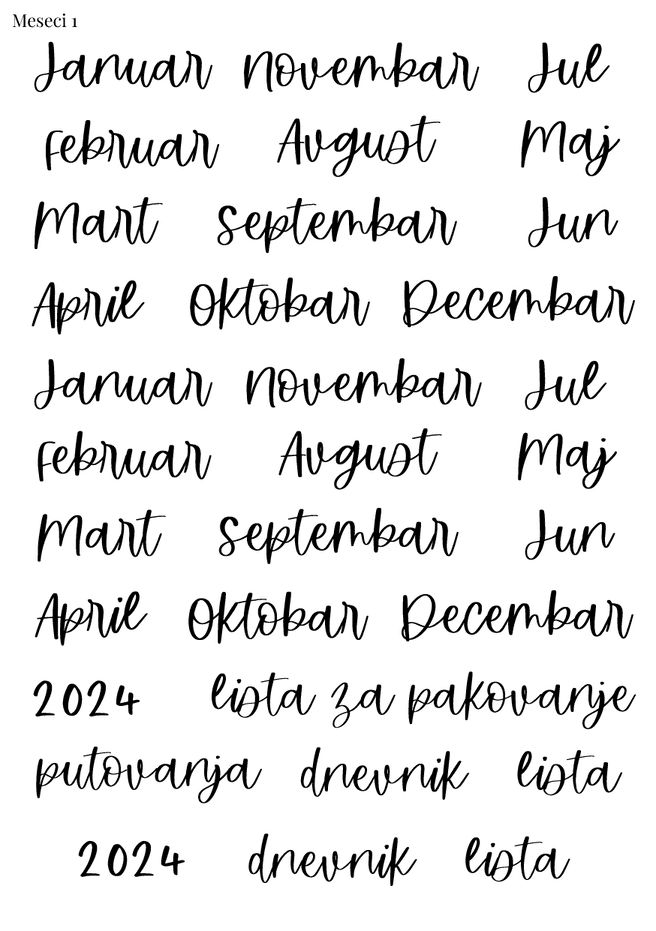 Meseci 1
Januar Novembar Jul
Februar Avgust Maj
Mart Septembar Jun
April Oktobar Decembar
Januar Novembar Jul
Februar Avgust Maj
Mart Septembar Jun
April Oktobar Decembar
2024 lista za pakovanje
putovanja dnevnik lista
2024 dnevnik lista